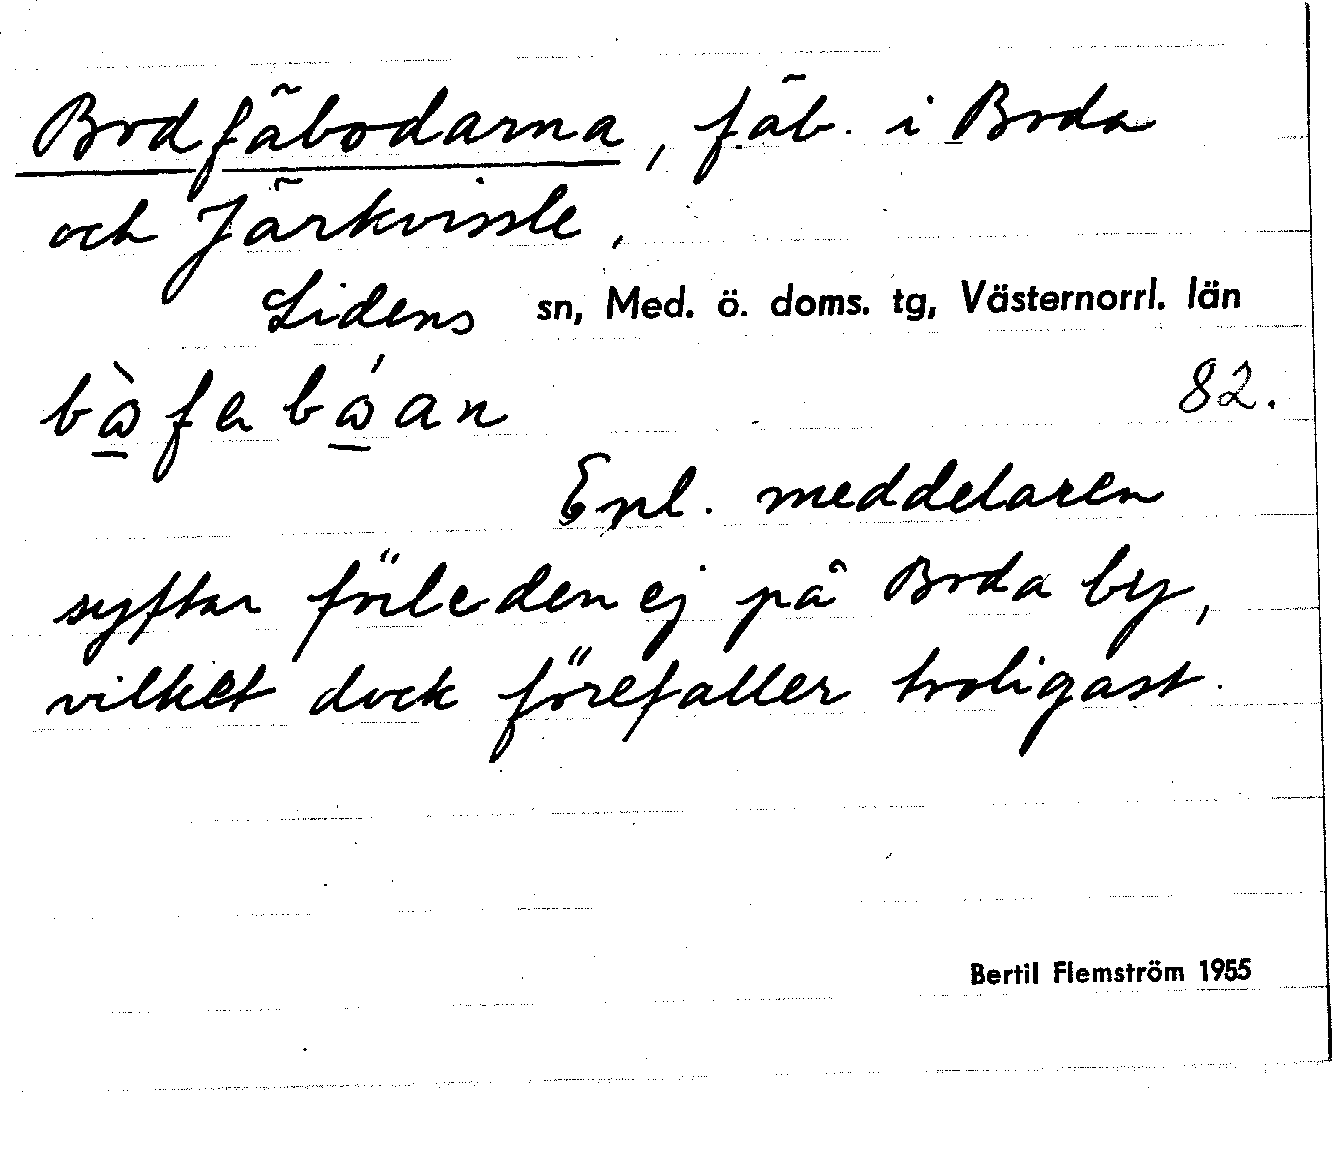 Bodfäbodarna, fäb. i Boda
och Järkvissle,
Lidens sn, Med. ö. doms. tg, Västernorrl. län
82.
Enl. meddelaren
syftar förleden ej på Boda by,
vilket dock förefaller troligast.
Bertil Flemström 1955